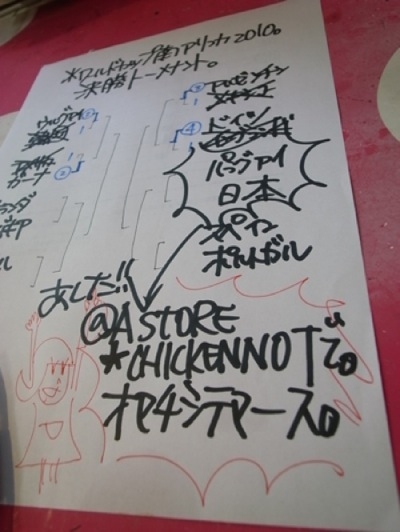 *ワールドカップ南アフリカ2010。
決勝トーメント。
ウルグアイ
ガーナ
アルゼンチン
メキシコ
ドイツ
パラグアイ
日本
スペイン
ポルトガル
あした!!
@ASTORE
*CHICKENNOTで。
オマチシテマース。